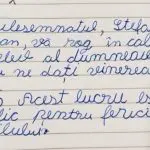 ulesemnatul, Ștefa
an, vă rog, în cal
al dumneav
ne dați vinerea
Acest lucru
lic pentru ferici
ilului.